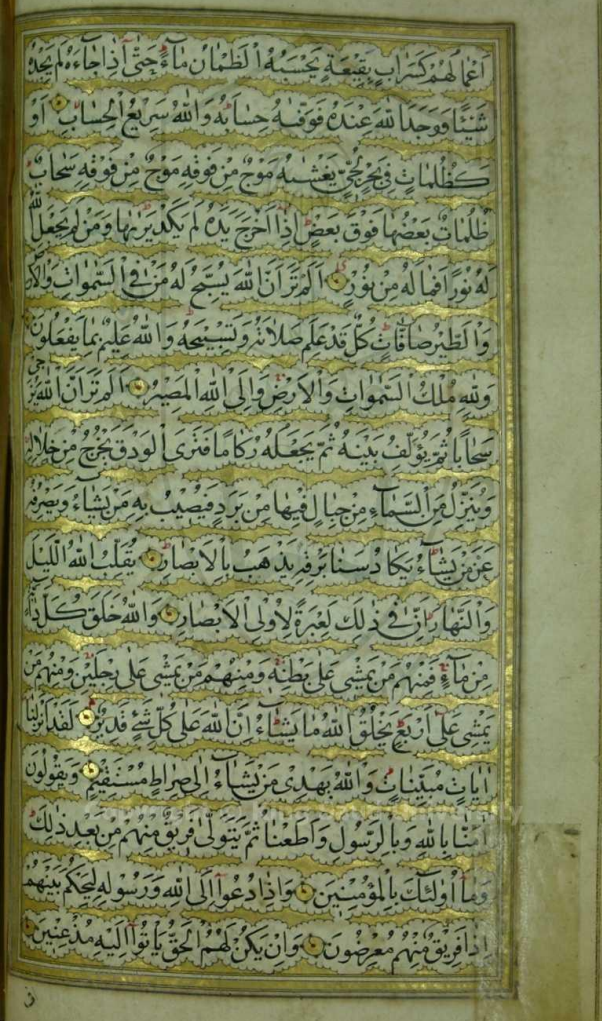 اَعْمَالُهُمْ كَسَرَابٍ بِقِيعَةٍ يَحْسَبُهُ الظَّمْاٰنُ مَآءً حَتّٰى اِذَا جَآءَهُ لَمْ يَجِدْهُ
شَيْئًا وَوَجَدَ اللّٰهَ عِنْدَهُ فَوَفّٰيهُ حِسَابَهُ وَاللّٰهُ سَرِيعُ الْحِسَابِ اَوْ
كَظُلُمَاتٍ فِي بَحْرٍ لُجِّيٍّ يَغْشٰيهُ مَوْجٌ مِنْ فَوْقِهِ مَوْجٌ مِنْ فَوْقِهِ سَحَابٌ
ظُلُمَاتٌ بَعْضُهَا فَوْقَ بَعْضٍ اِذَا اَخْرَجَ يَدَهُ لَمْ يَكَدْ يَرٰيهَا وَمَنْ لَمْ يَجْعَلِ اللّٰهُ
لَهُ نُورًا فَمَا لَهُ مِنْ نُورٍ اَلَمْ تَرَ اَنَّ اللّٰهَ يُسَبِّحُ لَهُ مَنْ فِي السَّمٰوَاتِ وَالْاَرْضِ
وَالطَّيْرُ صَافَّاتٍ كُلٌّ قَدْ عَلِمَ صَلَاتَهُ وَتَسْبِيحَهُ وَاللّٰهُ عَلِيمٌ بِمَا يَفْعَلُونَ
وَلِلّٰهِ مُلْكُ السَّمٰوَاتِ وَالْاَرْضِ وَاِلَى اللّٰهِ الْمَصِيرُ اَلَمْ تَرَ اَنَّ اللّٰهَ يُزْجِي
سَحَابًا ثُمَّ يُؤَلِّفُ بَيْنَهُ ثُمَّ يَجْعَلُهُ رُكَامًا فَتَرَى الْوَدْقَ يَخْرُجُ مِنْ خِلَالِهِ
وَيُنَزِّلُ مِنَ السَّمَآءِ مِنْ جِبَالٍ فِيهَا مِنْ بَرَدٍ فَيُصِيبُ بِهِ مَنْ يَشَآءُ وَيَصْرِفُهُ
عَنْ مَنْ يَشَآءُ يَكَادُ سَنَا بَرْقِهِ يَذْهَبُ بِالْاَبْصَارِ يُقَلِّبُ اللّٰهُ اللَّيْلَ
وَالنَّهَارَ اِنَّ فِي ذٰلِكَ لَعِبْرَةً لِاُولِي الْاَبْصَارِ وَاللّٰهُ خَلَقَ كُلَّ دَآبَّةٍ
مِنْ مَآءٍ فَمِنْهُمْ مَنْ يَمْشِي عَلٰى بَطْنِهِ وَمِنْهُمْ مَنْ يَمْشِي عَلٰى رِجْلَيْنِ وَمِنْهُمْ مَنْ
يَمْشِي عَلٰى اَرْبَعٍ يَخْلُقُ اللّٰهُ مَا يَشَآءُ اِنَّ اللّٰهَ عَلٰى كُلِّ شَيْءٍ قَدِيرٌ لَقَدْ اَنْزَلْنَا
اٰيَاتٍ مُبَيِّنَاتٍ وَاللّٰهُ يَهْدِي مَنْ يَشَآءُ اِلٰى صِرَاطٍ مُسْتَقِيمٍ وَيَقُولُونَ
اٰمَنَّا بِاللّٰهِ وَبِالرَّسُولِ وَاَطَعْنَا ثُمَّ يَتَوَلّٰى فَرِيقٌ مِنْهُمْ مِنْ بَعْدِ ذٰلِكَ
وَمَآ اُولٰئِكَ بِالْمُؤْمِنِينَ وَاِذَا دُعُوا اِلَى اللّٰهِ وَرَسُولِهِ لِيَحْكُمَ بَيْنَهُمْ
اِذَا فَرِيقٌ مِنْهُمْ مُعْرِضُونَ وَاِنْ يَكُنْ لَهُمُ الْحَقُّ يَاْتُوا اِلَيْهِ مُذْعِنِينَ